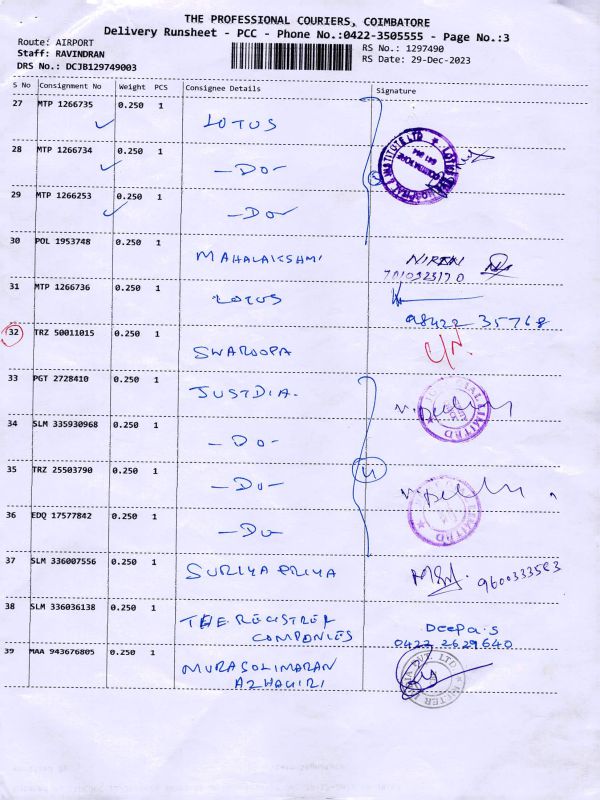 THE PROFESSIONAL COURIERS, COIMBATORE
Delivery Runsheet - PCC - Phone No.:0422-3505555 - Page No.:3
Route: AIRPORT
Staff: RAVINDRAN
DRS No.: DCJB129749003
RS No.: 1297490
RS Date: 29-Dec-2023
S No Consignment No Weight PCS Consignee Details Signature
27 MTP 1266735 0.250 1 LOTUS
28 MTP 1266734 0.250 1 -Do-
29 MTP 1266253 0.250 1 -Do-
30 POL 1953748 0.250 1 MAHALAKSHMI
31 MTP 1266736 0.250 1 LOTUS
98422 35768
32 TRZ 50011015 0.250 1 SWAROOPA
33 PGT 2728410 0.250 1 JUSTDIA.
34 SLM 335930968 0.250 1 -Do-
35 TRZ 25503790 0.250 1 -Do-
4
36 EDQ 17577842 0.250 1 -Do-
37 SLM 336007556 0.250 1 SURIYA PRIYA
38 SLM 336036138 0.250 1 THE REGISTRER
COMPONIES
Deepa.S
0422 2629640
39 MAA 943676805 0.250 1 MURASOLIMARAN
AZHAGIRI